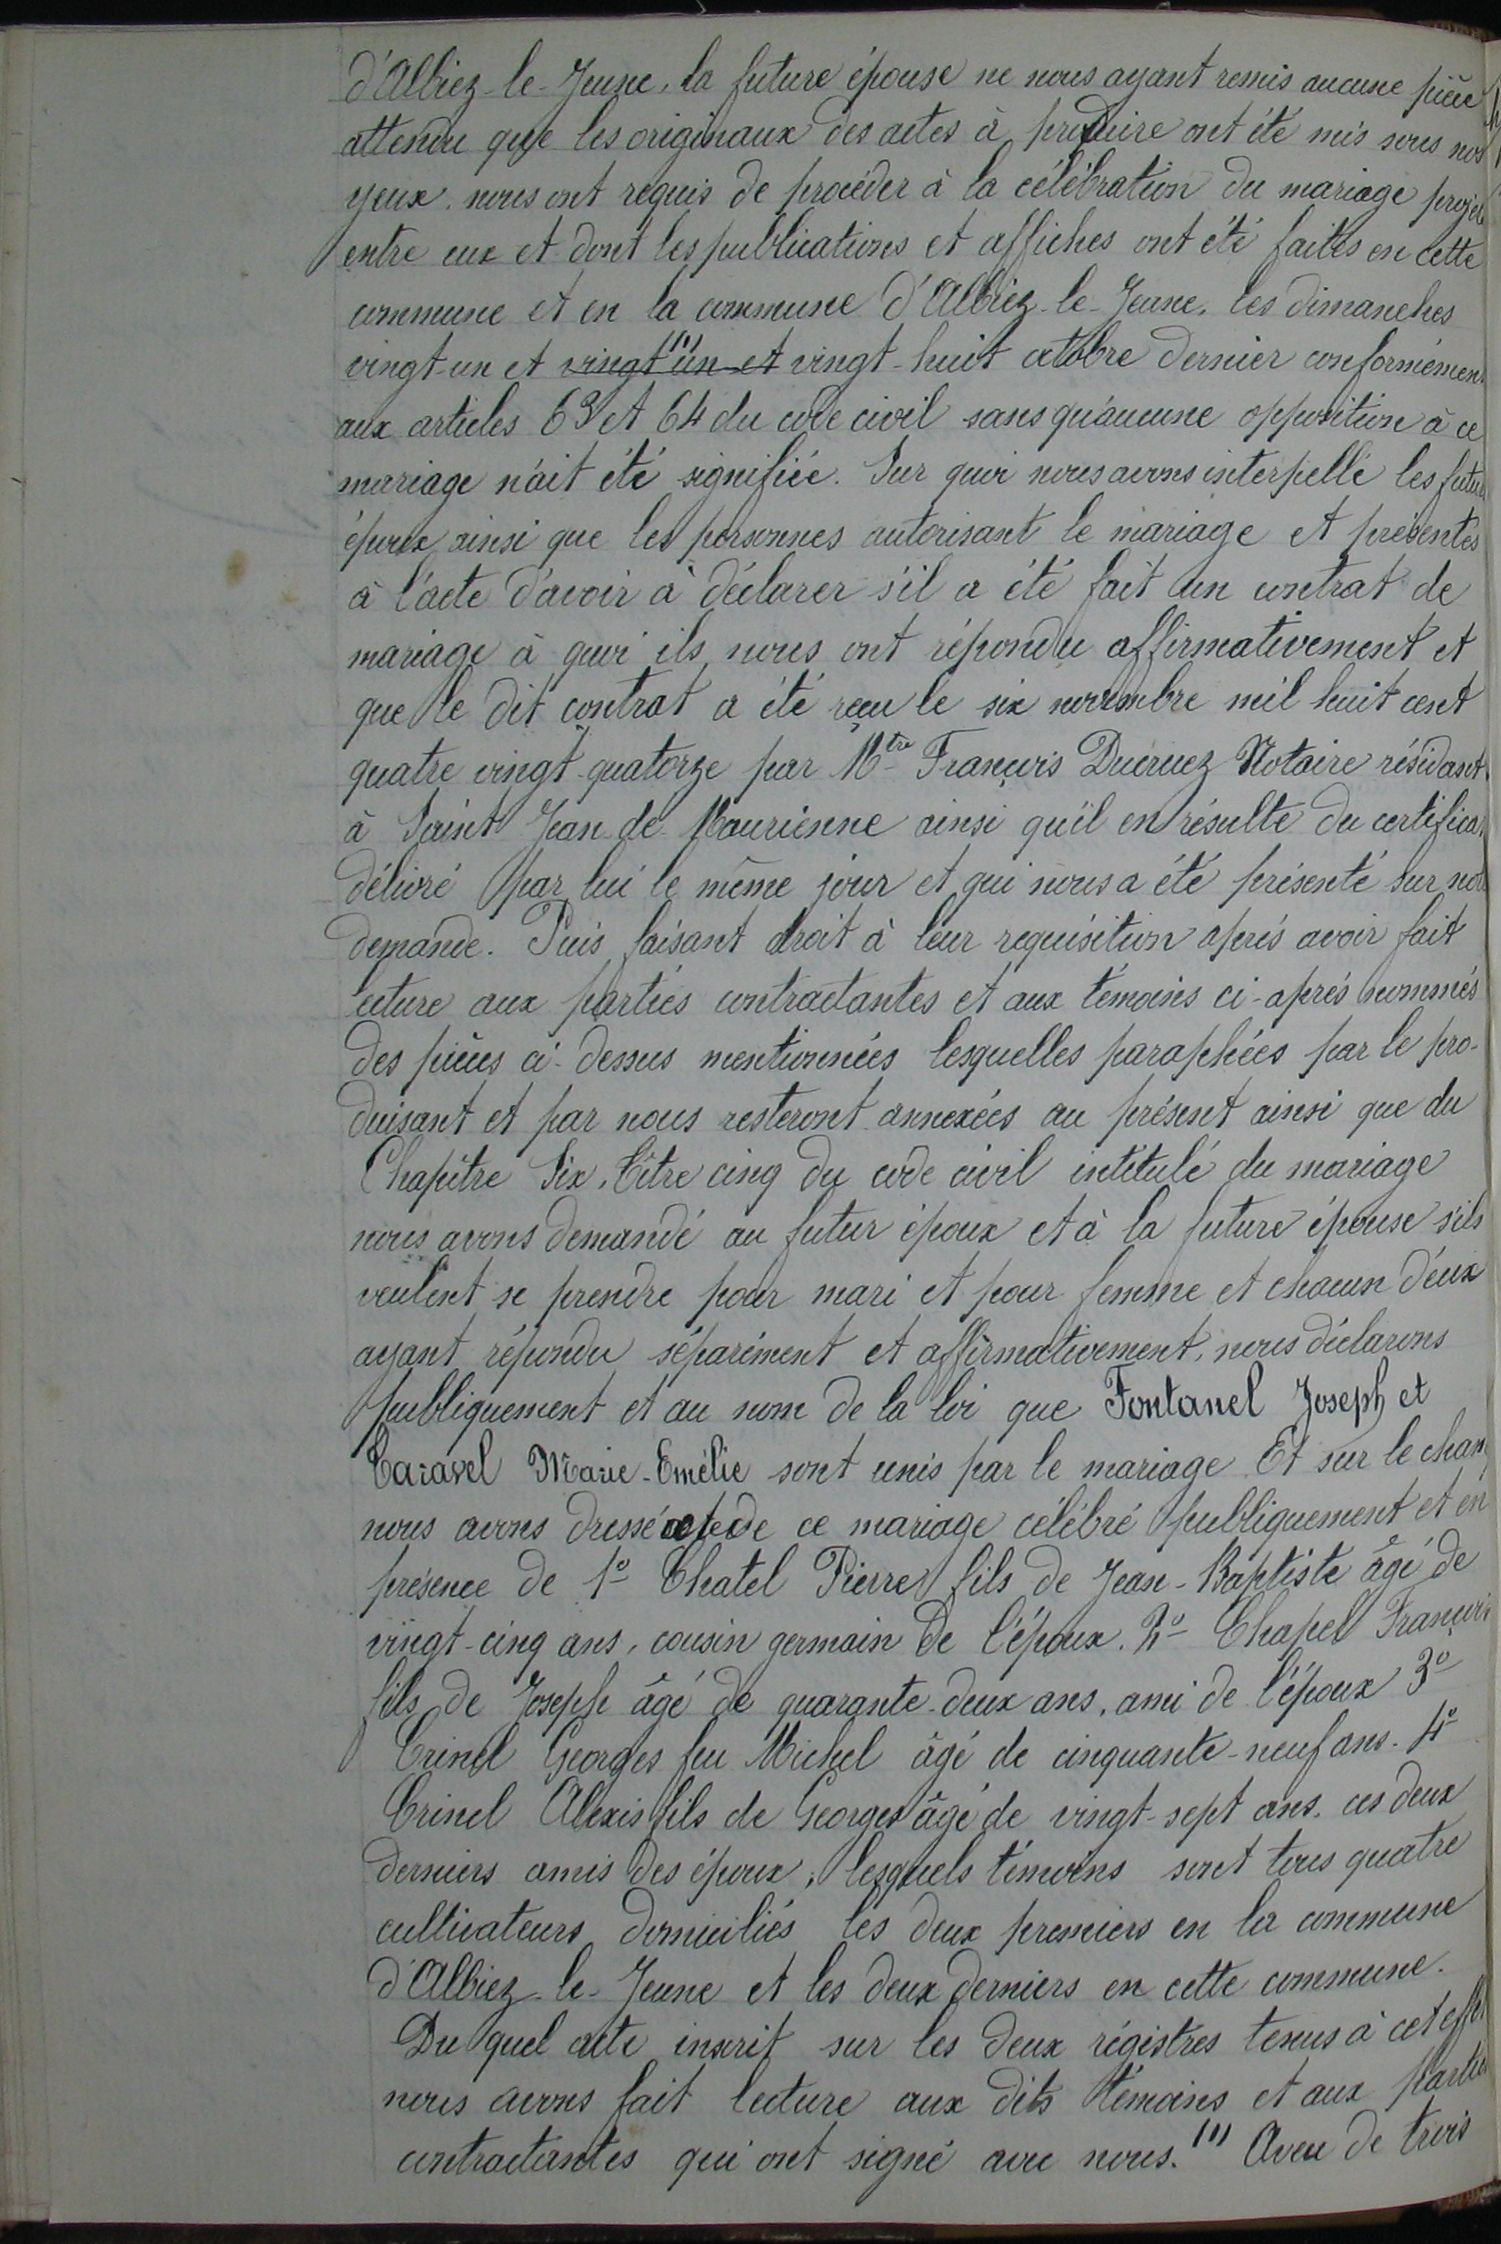 d'Albiez-le-Jeune, la future épouse ne nous ayant remis aucune pièce
attendu que les originaux des actes à produire ont été mis sous nos
yeux, nous ont requis de procéder à la célébration du mariage projeté
entre eux et dont les publications et affiches ont été faites en cette
commune et en la commune d'Albiez-le-Jeune, les dimanches
vingt-un et vingt-un et (1) vingt-huit octobre dernier conformément
aux articles 63 et 64 du code civil sans qu'aucune opposition à ce
mariage n'ait été signifiée. Sur quoi nous avons interpellé les futurs
époux ainsi que les personnes autorisant le mariage et présentes
à l'acte d'avoir à déclarer s'il a été fait un contrat de
mariage à quoi ils nous ont répondu affirmativement et
que le dit contrat a été reçu le six novembre mil huit cent
quatre vingt-quatorze par Mtre François Ducruez Notaire résidant
à Saint Jean-de-Maurienne ainsi qu'il en résulte du certificat
délivré par lui le même jour et qui nous a été présenté sur notre
demande. Puis faisant droit à leur requisition après avoir fait
lecture aux parties contractantes et aux témoins ci-après nommés
des pièces ci-dessus mentionnées lesquelles paraphées par le pro-
duisant et par nous resteront annexées au présent ainsi que du
Chapitre Six, Titre cinq du code civil intitulé du mariage
nous avons demandé au futur époux et à la future épouse s'ils
veulent se prendre pour mari et pour femme et chacun d'eux
ayant répondu séparément et affirmativement, nous déclarons
publiquement et au nom de la loi que Fontanel Joseph et
Taravel Marie-Emélie sont unis par le mariage Et sur le champ
nous avons dressé acte de ce mariage célébré publiquement et en
présence de 1° Chatel Pierre fils de Jean-Baptiste âgé de
vingt-cinq ans, cousin germain de l'époux. 2° Chapel François
fils de Joseph âgé de quarante-deux ans, ami de l'époux 3°
Crinel Georges feu Michel âgé de cinquante-neuf ans. 4°
Crinel Alexis fils de Georges âgé de vingt-sept ans, ces deux
derniers amis des époux; lesquels témoins sont tous quatre
cultivateurs domiciliés les deux premiers en la commune
d'Albiez-le-Jeune et les deux derniers en cette commune.
Du quel acte inscrit sur les deux régistres tenus à cet effet
nous avons fait lecture aux dits témoins et aux parties
contractantes qui ont signé avec nous. (1) Aveu de trois